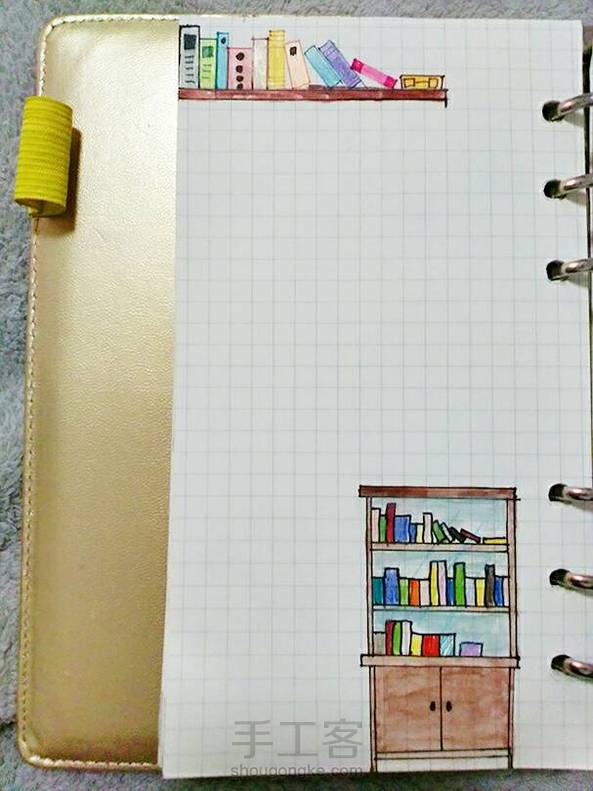 手工客
shougongke.com